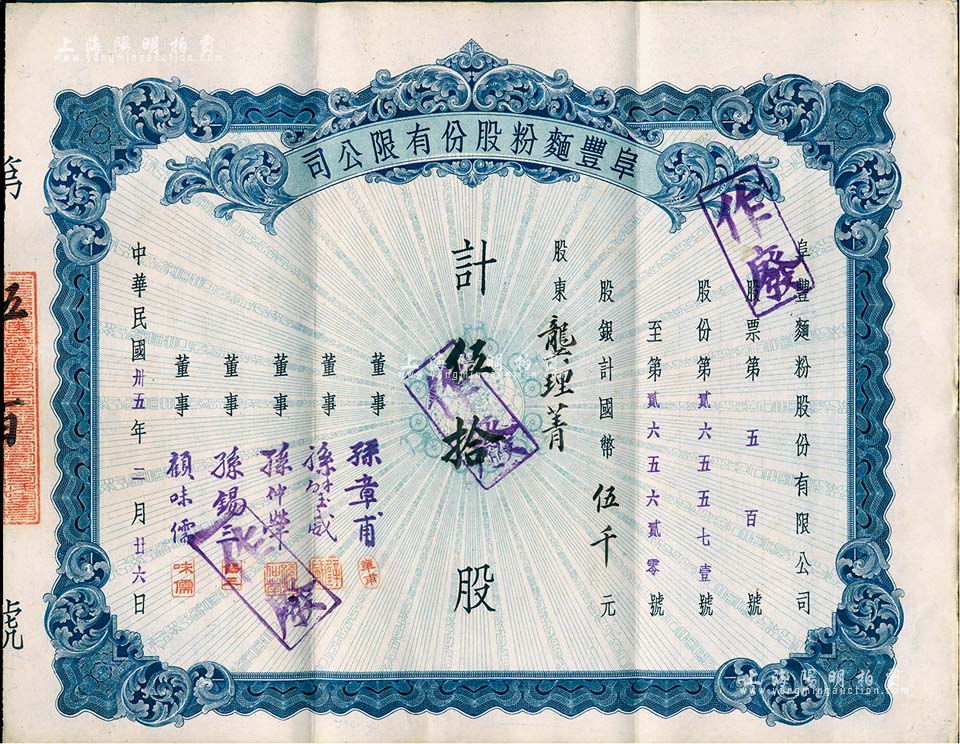 上海陽明拍賣
www.yangmingauction.com
阜豐麵粉股份有限公司
阜豐麵粉股份有限公司
股票第五百號
股份第貳六五五七壹號
至第貳六五六貳零號
股銀計國幣伍千元
股東 龔理菁
計伍拾股
董事 孫章甫
董事
董事 孫仲犖
董事 孫錫三
董事 顧味儒
中華民國卅五年二月廿六日
作廢
作廢
作廢
章甫
味儒
第
伍百
號
上海陽明拍賣
www.yangmingauction.com